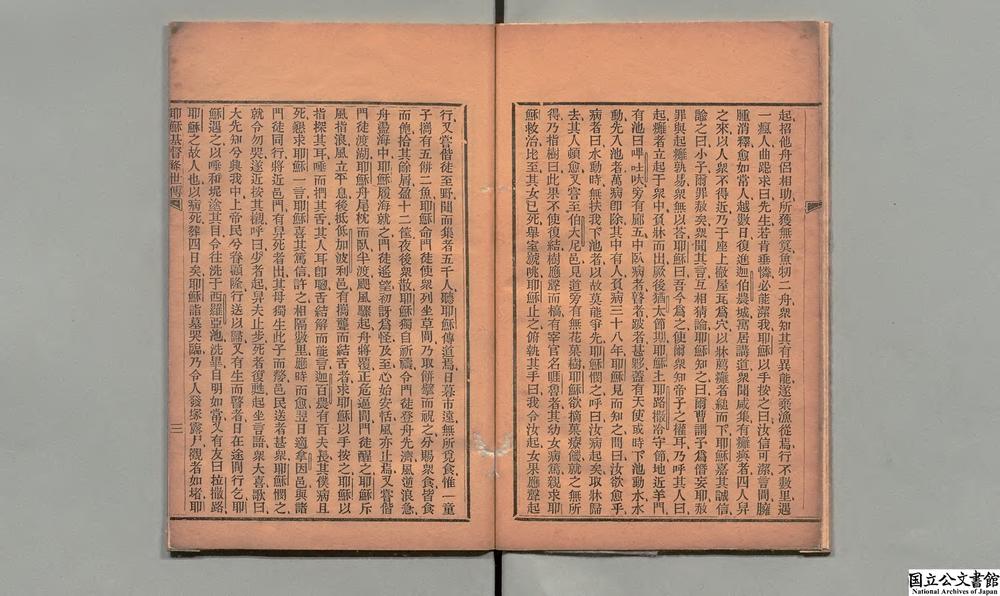 起招他舟侶相助所獲無算魚牣二舟衆知其有異能遂棄漁從焉行不數里遇
一瘋人曲跽求曰先生若肯垂憐必能潔我耶穌以手按之曰汝信可潔言間臃
腫消釋愈如常人越數日復進迦伯農城寓居講道衆聞咸集有癱瘓者四人舁
之來以人衆不得近乃于座上撤屋瓦爲穴以牀薦癱者縋而下耶穌嘉其誠信
諭之曰小子爾罪赦矣衆聞其言互相猜論耶穌知之曰爾曹謂予爲僭妄耶赦
罪與起癱孰易衆無以荅耶穌曰吾今爲之使爾衆知帝子之權耳乃呼其人曰
起癱者立起于衆中負牀而出厥後猶太節期耶穌上耶路撒冷守節地近羊門
有池曰呷吐吠旁有廊五中臥病者瞽者跛者甚夥蓋有天使或時下池動水水
動先入池者萬病卽除其中有人負病三十八年耶穌見而知之問曰汝欲愈乎
病者曰水動時無扶我下池者以故莫能爭先耶穌憫之呼曰汝病起矣取牀歸
去其人頓愈又嘗至伯大尼邑見道旁有無花菓樹耶穌欲摘菓療饑就之無所
得乃指樹曰此果不使復結樹應聲而槁有宰官名睚魯者其幼女病篤親求耶
穌救治比至其女已死舉室號咷耶穌止之俯執其手曰我令汝起女果應聲起
行又嘗偕徒至野聞而集者五千人聽耶穌傳道焉日暮市遠無所覓食惟一童
子攜有五餅二魚耶穌命門徒使衆列坐草間乃取餅擘而視之分賜衆食皆食
而飽拾其餘屑盈十二筐夜後衆散耶穌獨自祈禱令門徒登舟先濟風逆浪急
舟盪海中耶穌履海就之門徒遙望初訝爲怪及至心始安恬風亦止焉又嘗偕
門徒渡湖耶穌舟尾枕而臥半渡颶風驟起舟將覆正危逼間門徒醒之耶穌斥
風指浪風立平息後抵低加波利邑有攜聾而結舌者求耶穌以手按之耶穌以
指探其耳唾而捫其舌其人耳卽聰舌結解而能言迦百農有百夫長其僕病且
死懇求耶穌一言耶穌喜其篤信許之相隔數里應時而愈翌日適拿因邑與諸
門徒同行將近邑門有舁死者出其母獨生此子而孀邑民送者甚衆耶穌憫之
就令勿哭遂近按其櫬呼曰少者起舁夫止步死者復甦起坐言語衆大喜歌曰
大先知兮興我中上帝民兮眷顧隆行送以歸又有生而瞽者日在途間行乞耶
穌遇之以唾和坭塗其目令往洗于西羅亞池洗畢目明如常又有友曰拉撒路
耶穌之故人也以病死葬四日矣耶穌詣墓哭臨乃令人發塚露尸觀者如堵耶
耶穌基督降世傳 三
国立公文書館
National Archives of Japan